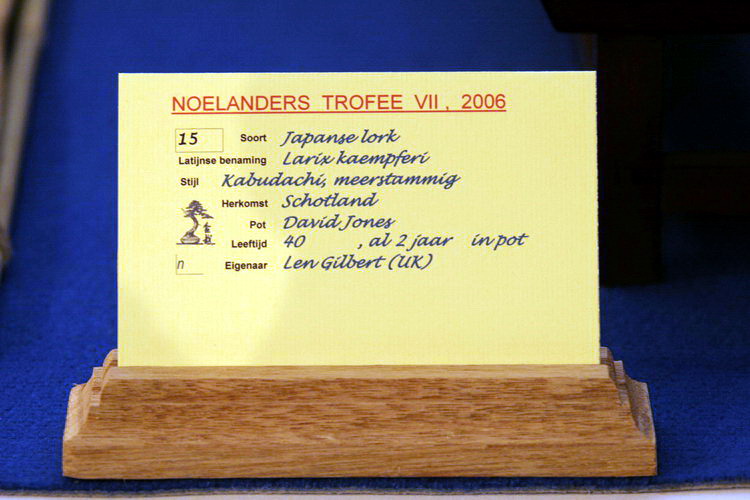 NOELANDERS TROFEE VII, 2006
15 Soort Japanse lork
Latijnse benaming Larix kaempferi
Stijl Kabudachi, meerstammig
Herkomst Schotland
Pot David Jones
Leeftijd 40 , al 2 jaar in pot
n Eigenaar Len Gilbert (UK)